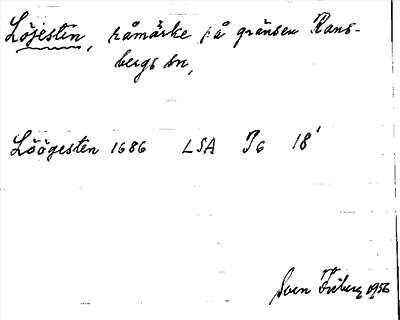 Löjesten, råmärke på gränsen Rans-
bergs sn,
Löögesten 1686 LSA P6 18'
Sven Friberg 1956